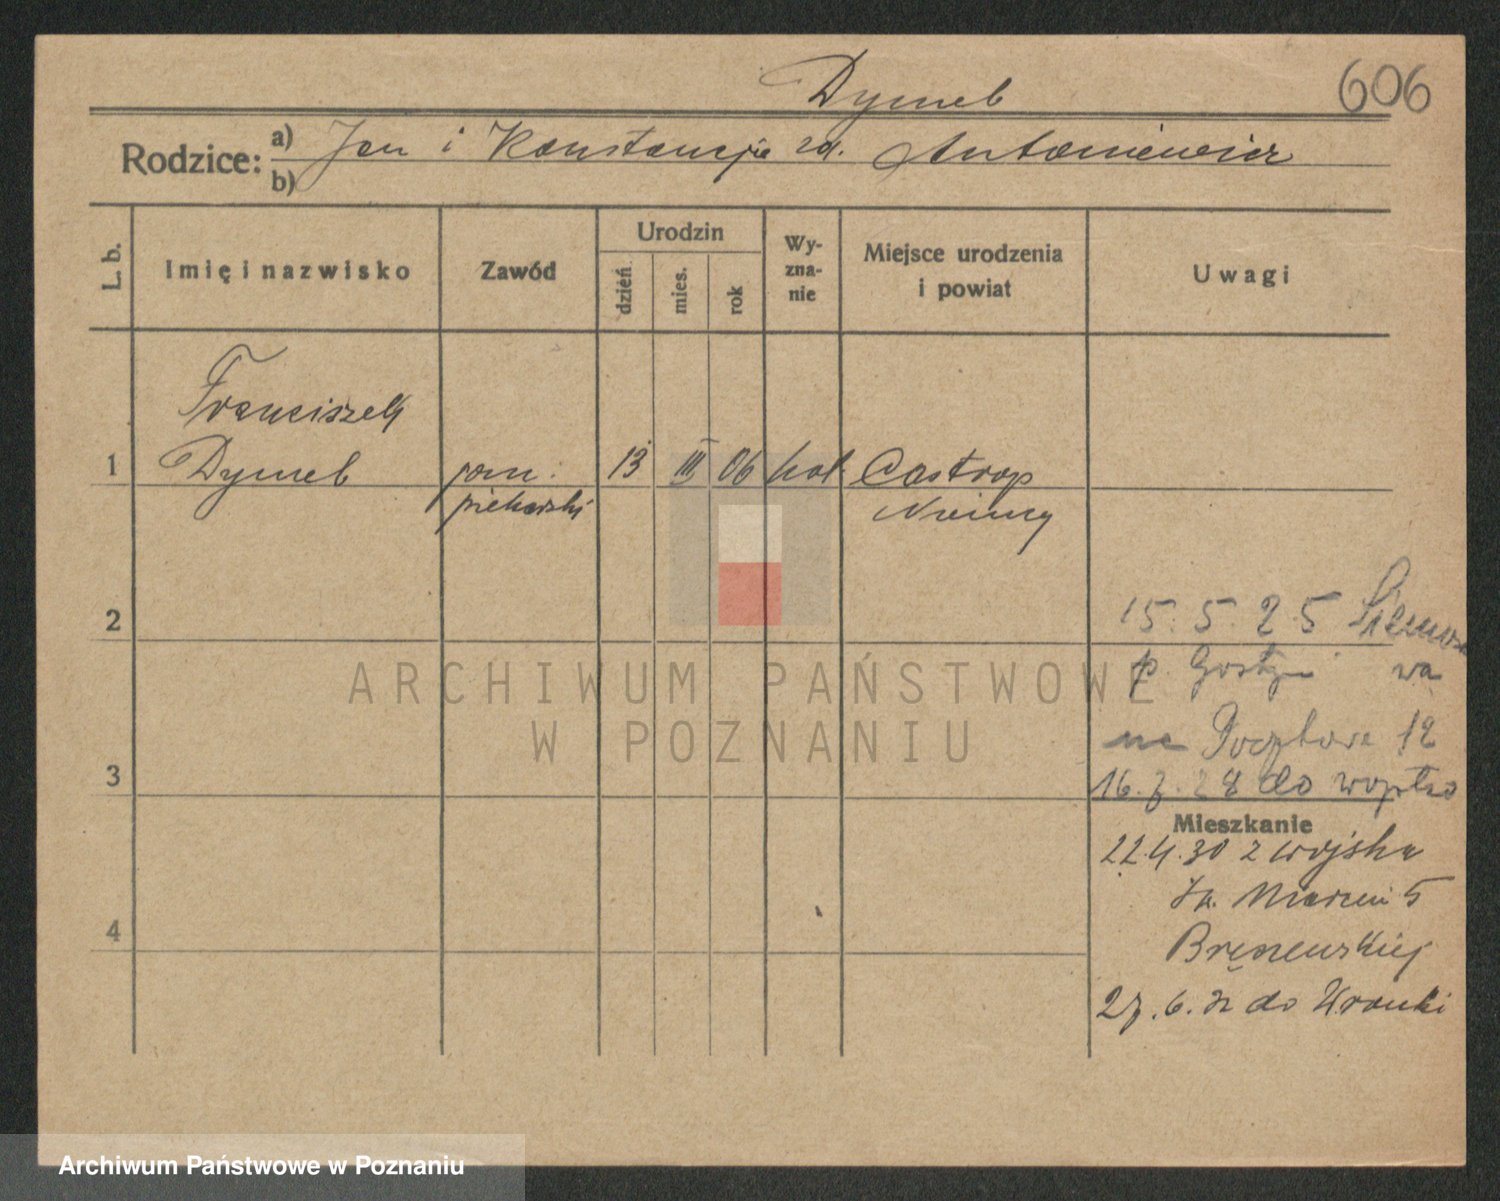 Dymeb
606
Rodzice: a) Jan i Konstancja zd. Antoniewicz
b)
L. b.
Imię i nazwisko
Zawód
Urodzin
dzień
mies.
rok
Wy-
zna-
nie
Miejsce urodzenia
i powiat
Uwagi
Franciszek
1 Dymeb pom. 13 III 06 kat. Castrop
piekarski Niemcy
2
15. 5. 25
p. Gostyń
na Pocztowa 12
3
16. 7. 28 do wojska
Mieszkanie
22.4.30 z wojska
Św. Marcin 5
4
27. 6. do Wronki
ARCHIWUM PAŃSTWOWE
W POZNANIU
Archiwum Państwowe w Poznaniu